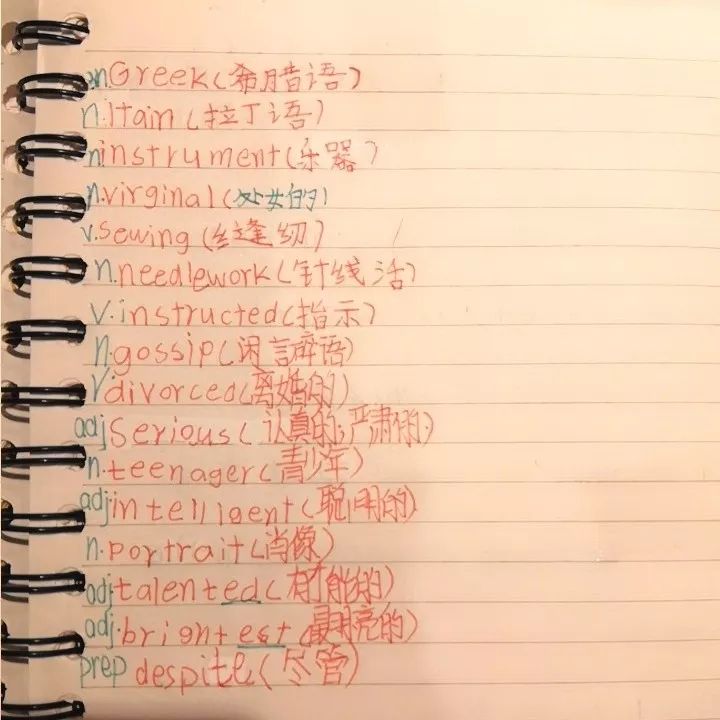 n.Greek(希腊语)
n.Itain(拉丁语)
n.instrument(乐器)
n.virginal(处女的)
v.Sewing(缝纫)
n.needlework(针线活)
v.instructed(指示)
n.gossip(闲言碎语)
v divorced(离婚的)
adj Serious(认真的;严肃的;)
n.teenager(青少年)
adj.intelligent(聪明的)
n.portrait(肖像)
adj talented(有才能的)
adj.brightest(最明亮的)
prep despite(尽管)